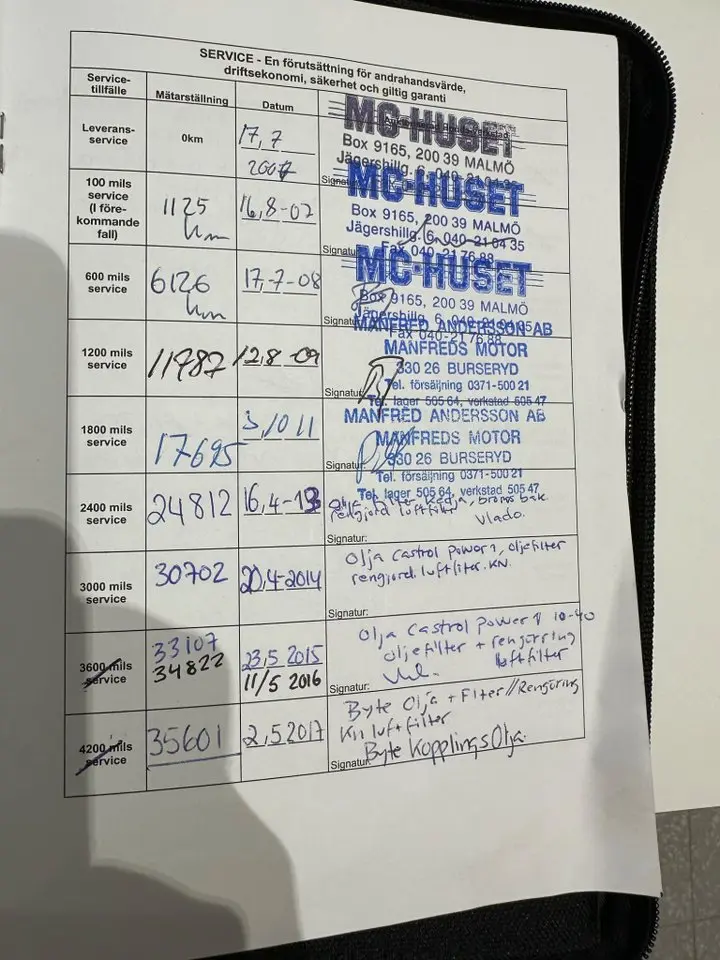 SERVICE - En förutsättning för andrahandsvärde,
driftsekonomi, säkerhet och giltig garanti
Service-
tillfälle
Mätarställning
Datum
Leverans-
service
0km
17,7
2007
MC HUSET
Box 9165, 200 39 MALMÖ
Jägershillg. 6, 040-21 64 35
Signatur:
100 mils
service
(I före-
kommande
fall)
1125
km
16,8-07
MC-HUSET
Box 9165, 200 39 MALMÖ
Jägershillg. 6, 040-21 64 35
Fax 040-21 76 88
Signatur:
600 mils
service
6126
km
17,-7-08
MC-HUSET
Box 9165, 200 39 MALMÖ
Jägershillg. 6, 040-21 64 35
Fax 040-21 76 88
Signatur:
1200 mils
service
11987
12,8-09
MANFRED ANDERSSON AB
MANFREDS MOTOR
330 26 BURSERYD
Tel. försäljning 0371-500 21
Tel. lager 505 64, verkstad 505 47
Signatur:
1800 mils
service
17695
3/10 11
MANFRED ANDERSSON AB
MANFREDS MOTOR
330 26 BURSERYD
Tel. försäljning 0371-500 21
Tel. lager 505 64, verkstad 505 47
Signatur:
2400 mils
service
24812
16,4-13
kedja, broms bak
rengjord luftfilter
Vlado.
Signatur:
3000 mils
service
30702
20,4-2014
Olja Castrol Power 1, oljefilter
rengjord. luftfilter. KN.
Signatur:
3600 mils
service
33107
34822
23,5 2015
11/5 2016
Olja Castrol Power 1 10-40
oljefilter + rengörring
luftfilter
Signatur:
4200 mils
service
35601
2,5 2017
Byte Olja + Filter//Rengöring
Kn luftfilter
Byte Kopplings Olja.
Signatur: